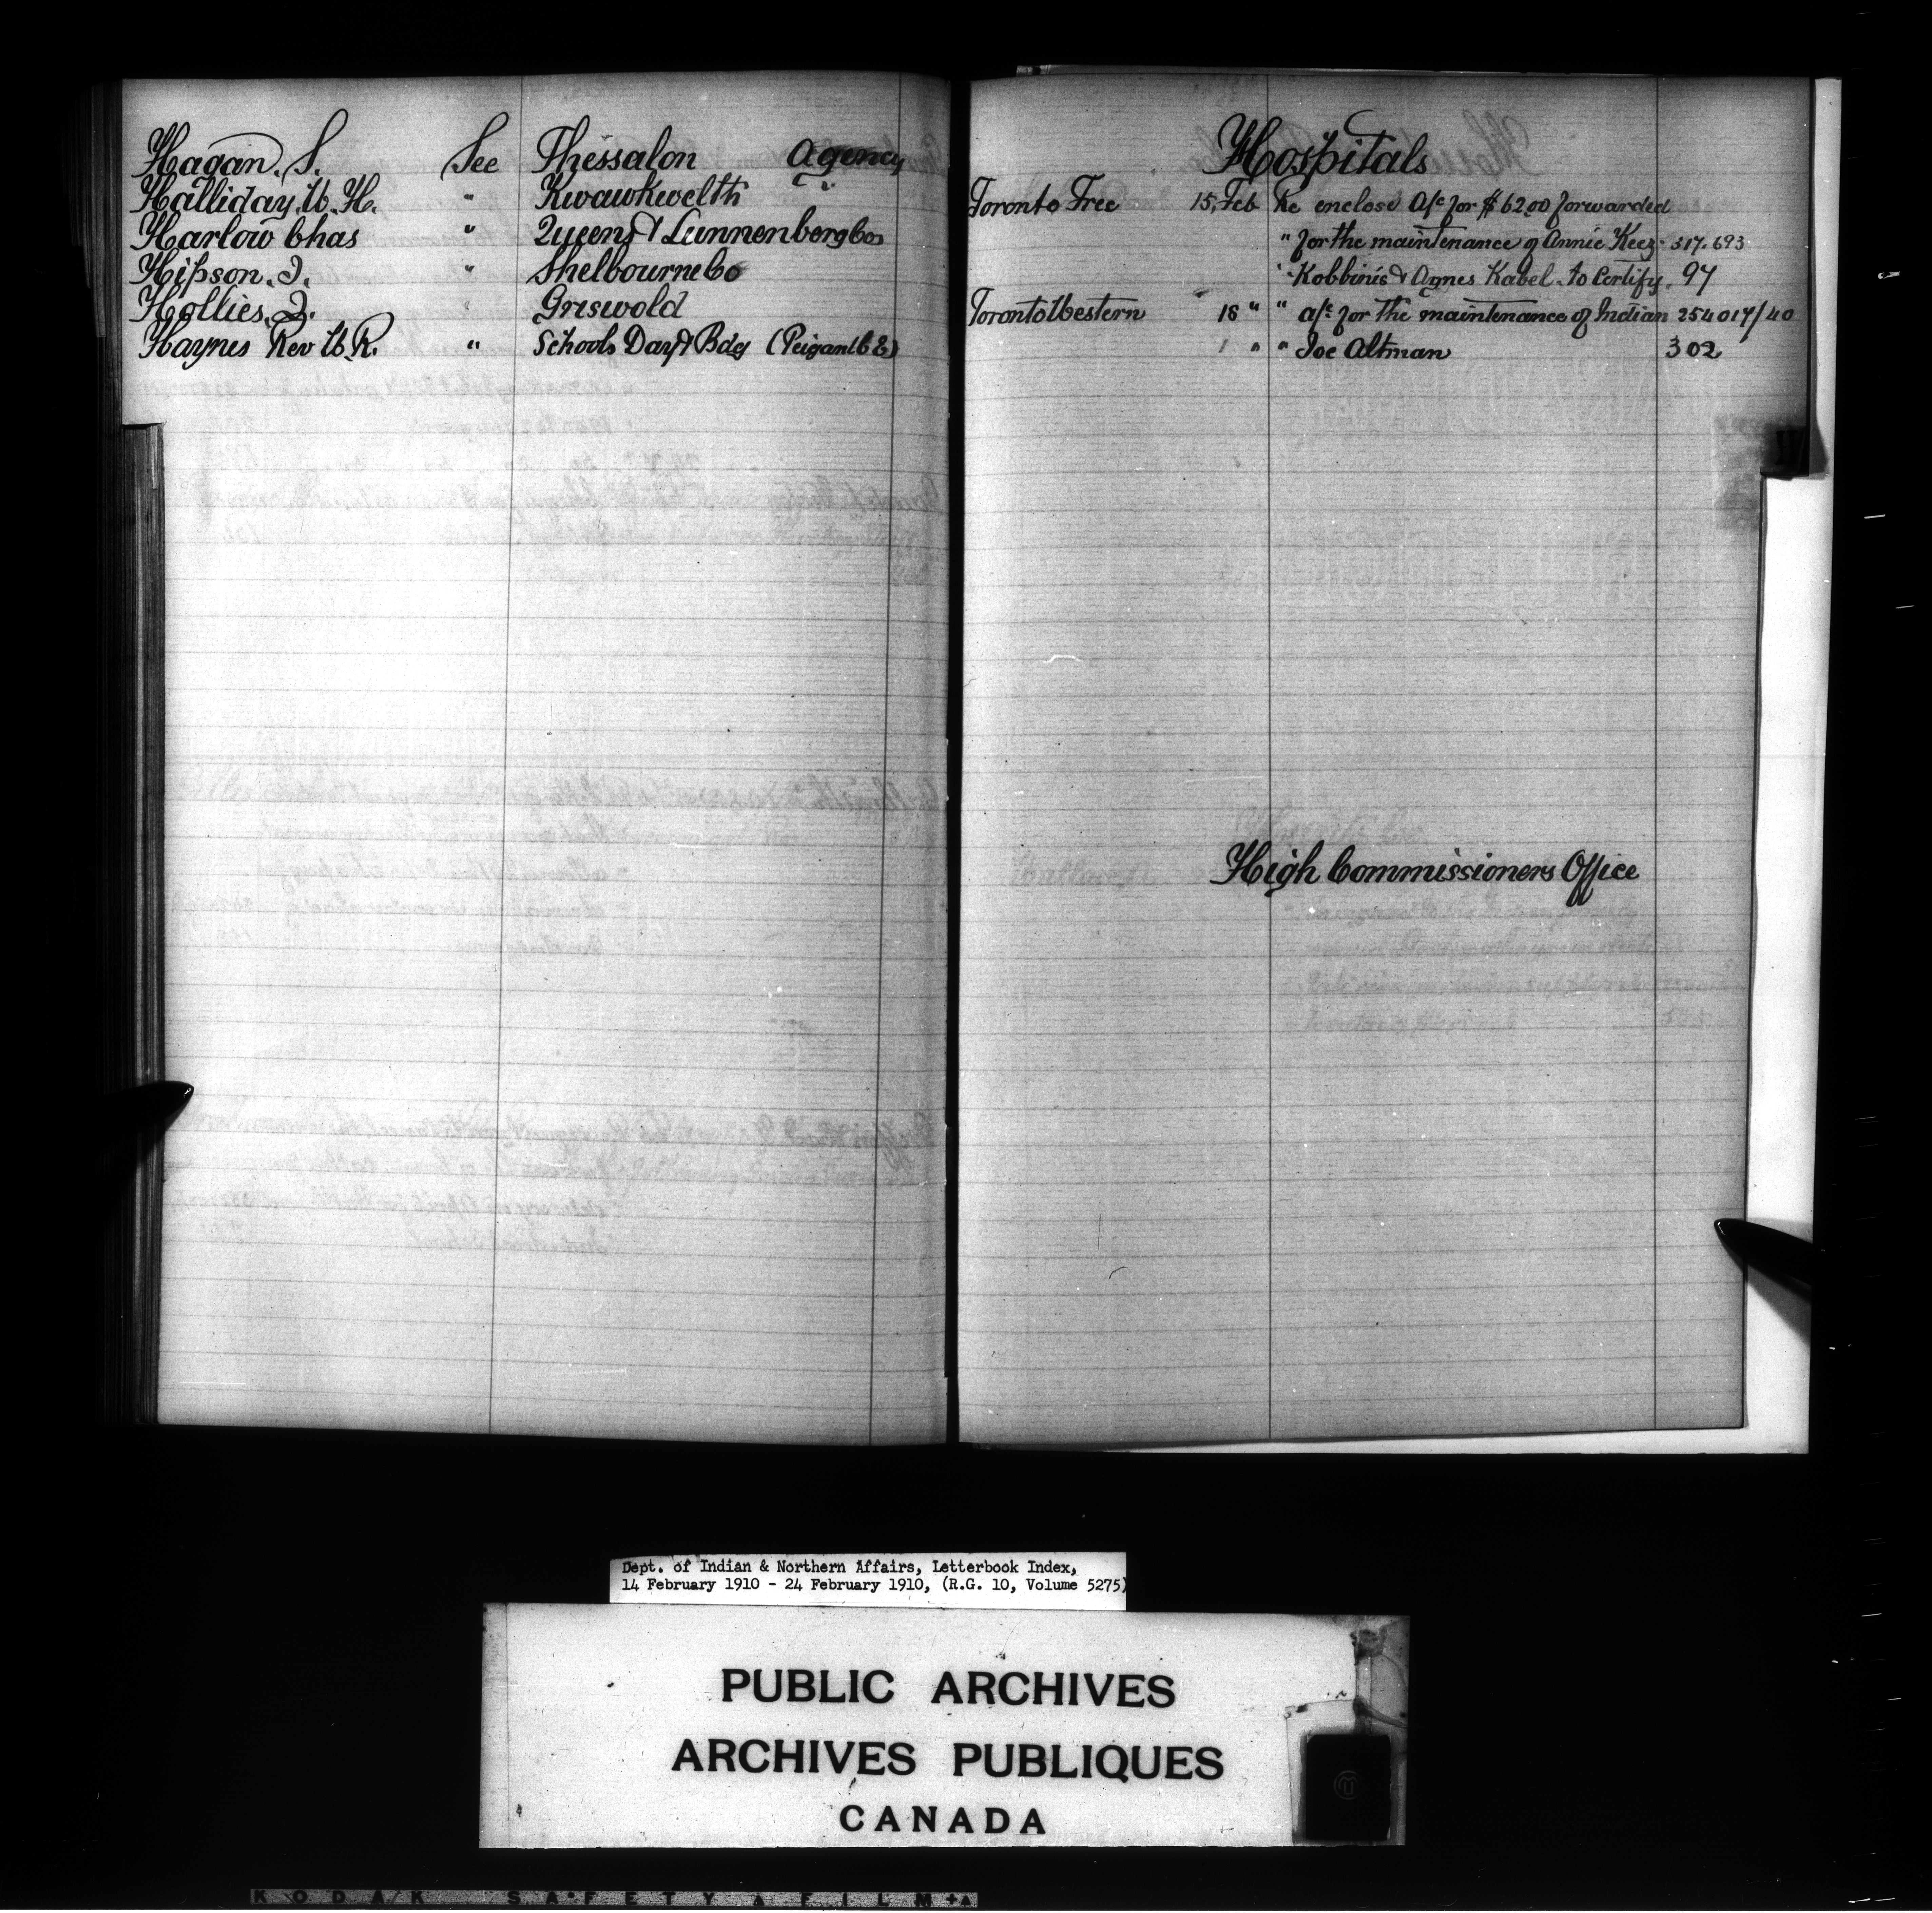 Hagan. S. See Thessalon Agency
Halliday. W. H. " Kwawkwelth
Harlow Chas " Queens & Lunnenberg Co
Hipson. J. " Shelbourne Co
Hollies. J. " Griswold
Haynes Rev W. R. " Schools Day & Bdg (Peigan C E)
Hospitals
Toronto Free 15, Feb Re enclose A/c for $ 62.00 forwarded
" for the maintenance of Annie Keez- 317.693
" & Agnes Kabel. to Certify. 97
Toronto Western 18 " " a/c for the maintenance of Indian 254017/40
" " Joe Altman 302
High Commissioners Office
Dept. of Indian & Northern Affairs, Letterbook Index,
14 February 1910 - 24 February 1910, (R.G. 10, Volume 5275)
PUBLIC ARCHIVES
ARCHIVES PUBLIQUES
CANADA
KODAK SAFETY FILM